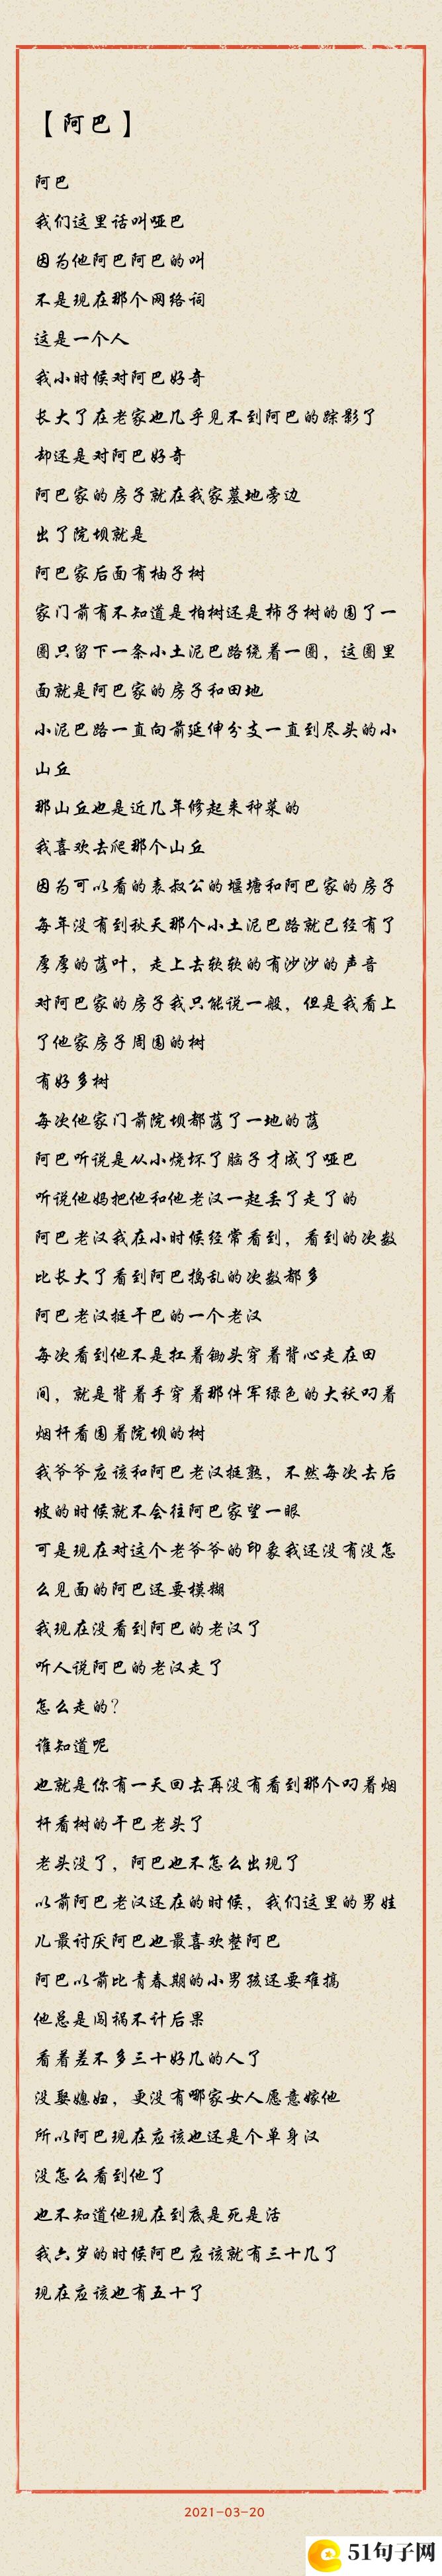 【阿巴】
阿巴
我们这里话叫哑巴
因为他阿巴阿巴的叫
不是现在那个网络词
这是一个人
我小时候对阿巴好奇
长大了在老家也几乎见不到阿巴的踪影了
却还是对阿巴好奇
阿巴家的房子就在我家墓地旁边
出了院坝就是
阿巴家后面有柚子树
家门前有不知道是柏树还是柿子树的围了一
圈只留下一条小土泥巴路绕着一圈，这圈里
面就是阿巴家的房子和田地
小泥巴路一直向前延伸分支一直到尽头的小
山丘
那山丘也是近几年修起来种菜的
我喜欢去爬那个山丘
因为可以看的表叔公的堰塘和阿巴家的房子
每年没有到秋天那个小土泥巴路就已经有了
厚厚的落叶，走上去软软的有沙沙的声音
对阿巴家的房子我只能说一般，但是我看上
了他家房子周围的树
有好多树
每次他家门前院坝都落了一地的落
阿巴听说是从小烧坏了脑子才成了哑巴
听说他妈把他和他老汉一起丢了走了的
阿巴老汉我在小时候经常看到，看到的次数
比长大了看到阿巴捣乱的次数都多
阿巴老汉挺干巴的一个老汉
每次看到他不是扛着锄头穿着背心走在田
间，就是背着手穿着那件军绿色的大袄叼着
烟杆看围着院坝的树
我爷爷应该和阿巴老汉挺熟，不然每次去后
坡的时候就不会往阿巴家望一眼
可是现在对这个老爷爷的印象我还没有没怎
么见面的阿巴还要模糊
我现在没看到阿巴的老汉了
听人说阿巴的老汉走了
怎么走的？
谁知道呢
也就是你有一天回去再没有看到那个叼着烟
杆看树的干巴老头了
老头没了，阿巴也不怎么出现了
以前阿巴老汉还在的时候，我们这里的男娃
儿最讨厌阿巴也最喜欢整阿巴
阿巴以前比青春期的小男孩还要难搞
他总是闯祸不计后果
看着差不多三十好几的人了
没娶媳妇，更没有哪家女人愿意嫁他
所以阿巴现在应该也还是个单身汉
没怎么看到他了
也不知道他现在到底是死是活
我六岁的时候阿巴应该就有三十几了
现在应该也有五十了
2021-03-20
51句子网